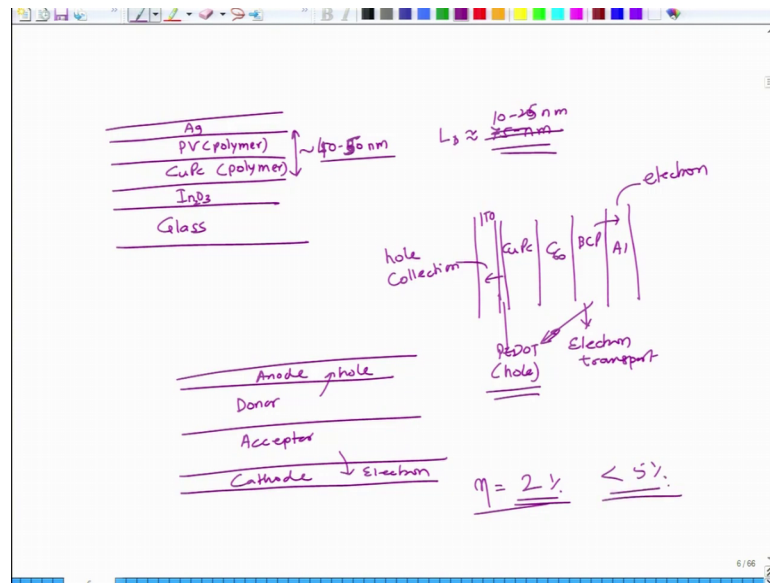 Ag
PV (polymer)
CuPc (polymer)
In2O3
Glass
~40-50 nm
10-25 nm
LD ≈ 75 nm
electron
ITO
CuPc
C60
BCP
Al
hole
Collection
PEDOT
(hole)
Electron
transport
Anode hole
Donor
Acceptor
Cathode Electron
η = 2%
< 5%
6/66